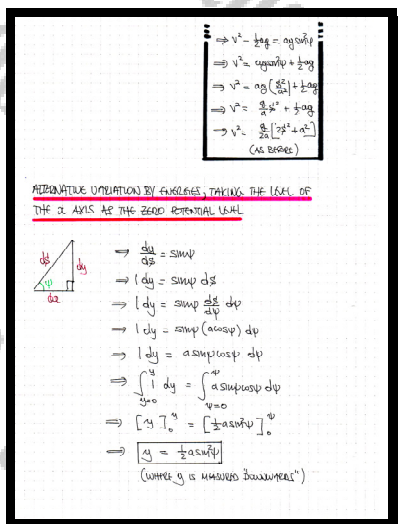 ⇒ v² - ½ag = ag sin²ψ
⇒ v² = ag sin²ψ + ½ag
⇒ v² = ag(s²/a²) + ½ag
⇒ v² = g/a s² + ½ag
⇒ v² = g/2a [2s² + a²]
(AS BEFORE)
ALTERNATIVE VARIATION BY ENERGIES, TAKING THE LEVEL OF
THE x AXIS AS THE ZERO POTENTIAL LEVEL
ds dy ψ dx
⇒ dy/ds = sinψ
⇒ 1 dy = sinψ ds
⇒ 1 dy = sinψ ds/dψ dψ
⇒ 1 dy = sinψ (acosψ) dψ
⇒ 1 dy = a sinψcosψ dψ
⇒ ∫_{y=0}^{y} 1 dy = ∫_{ψ=0}^{ψ} a sinψcosψ dψ
⇒ [y]_0^y = [½a sin²ψ]_0^ψ
⇒ y = ½a sin²ψ
(WHERE y IS MEASURED "DOWNWARDS")